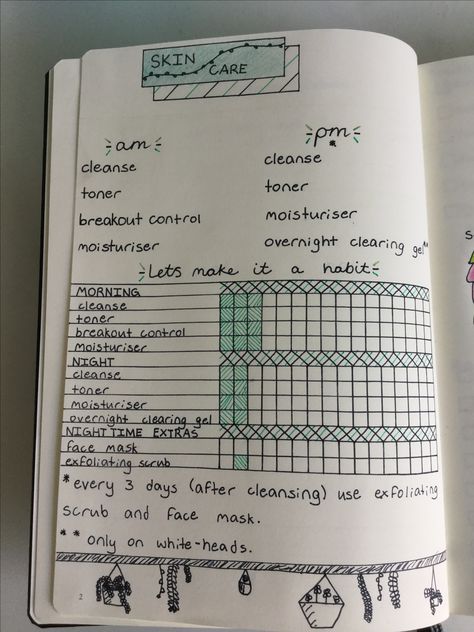 SKIN
CARE
am
cleanse
toner
breakout control
moisturiser
pm
*
cleanse
toner
moisturiser
overnight clearing gel**
Lets make it a habit
MORNING
cleanse
toner
breakout control
Moisturiser
NIGHT
cleanse
toner
moisturiser
overnight clearing gel
NIGHT TIME EXTRAS
face mask
exfoliating scrub
*every 3 days (after cleansing) use exfoliating
scrub and face mask.
** only on white-heads.
2
S